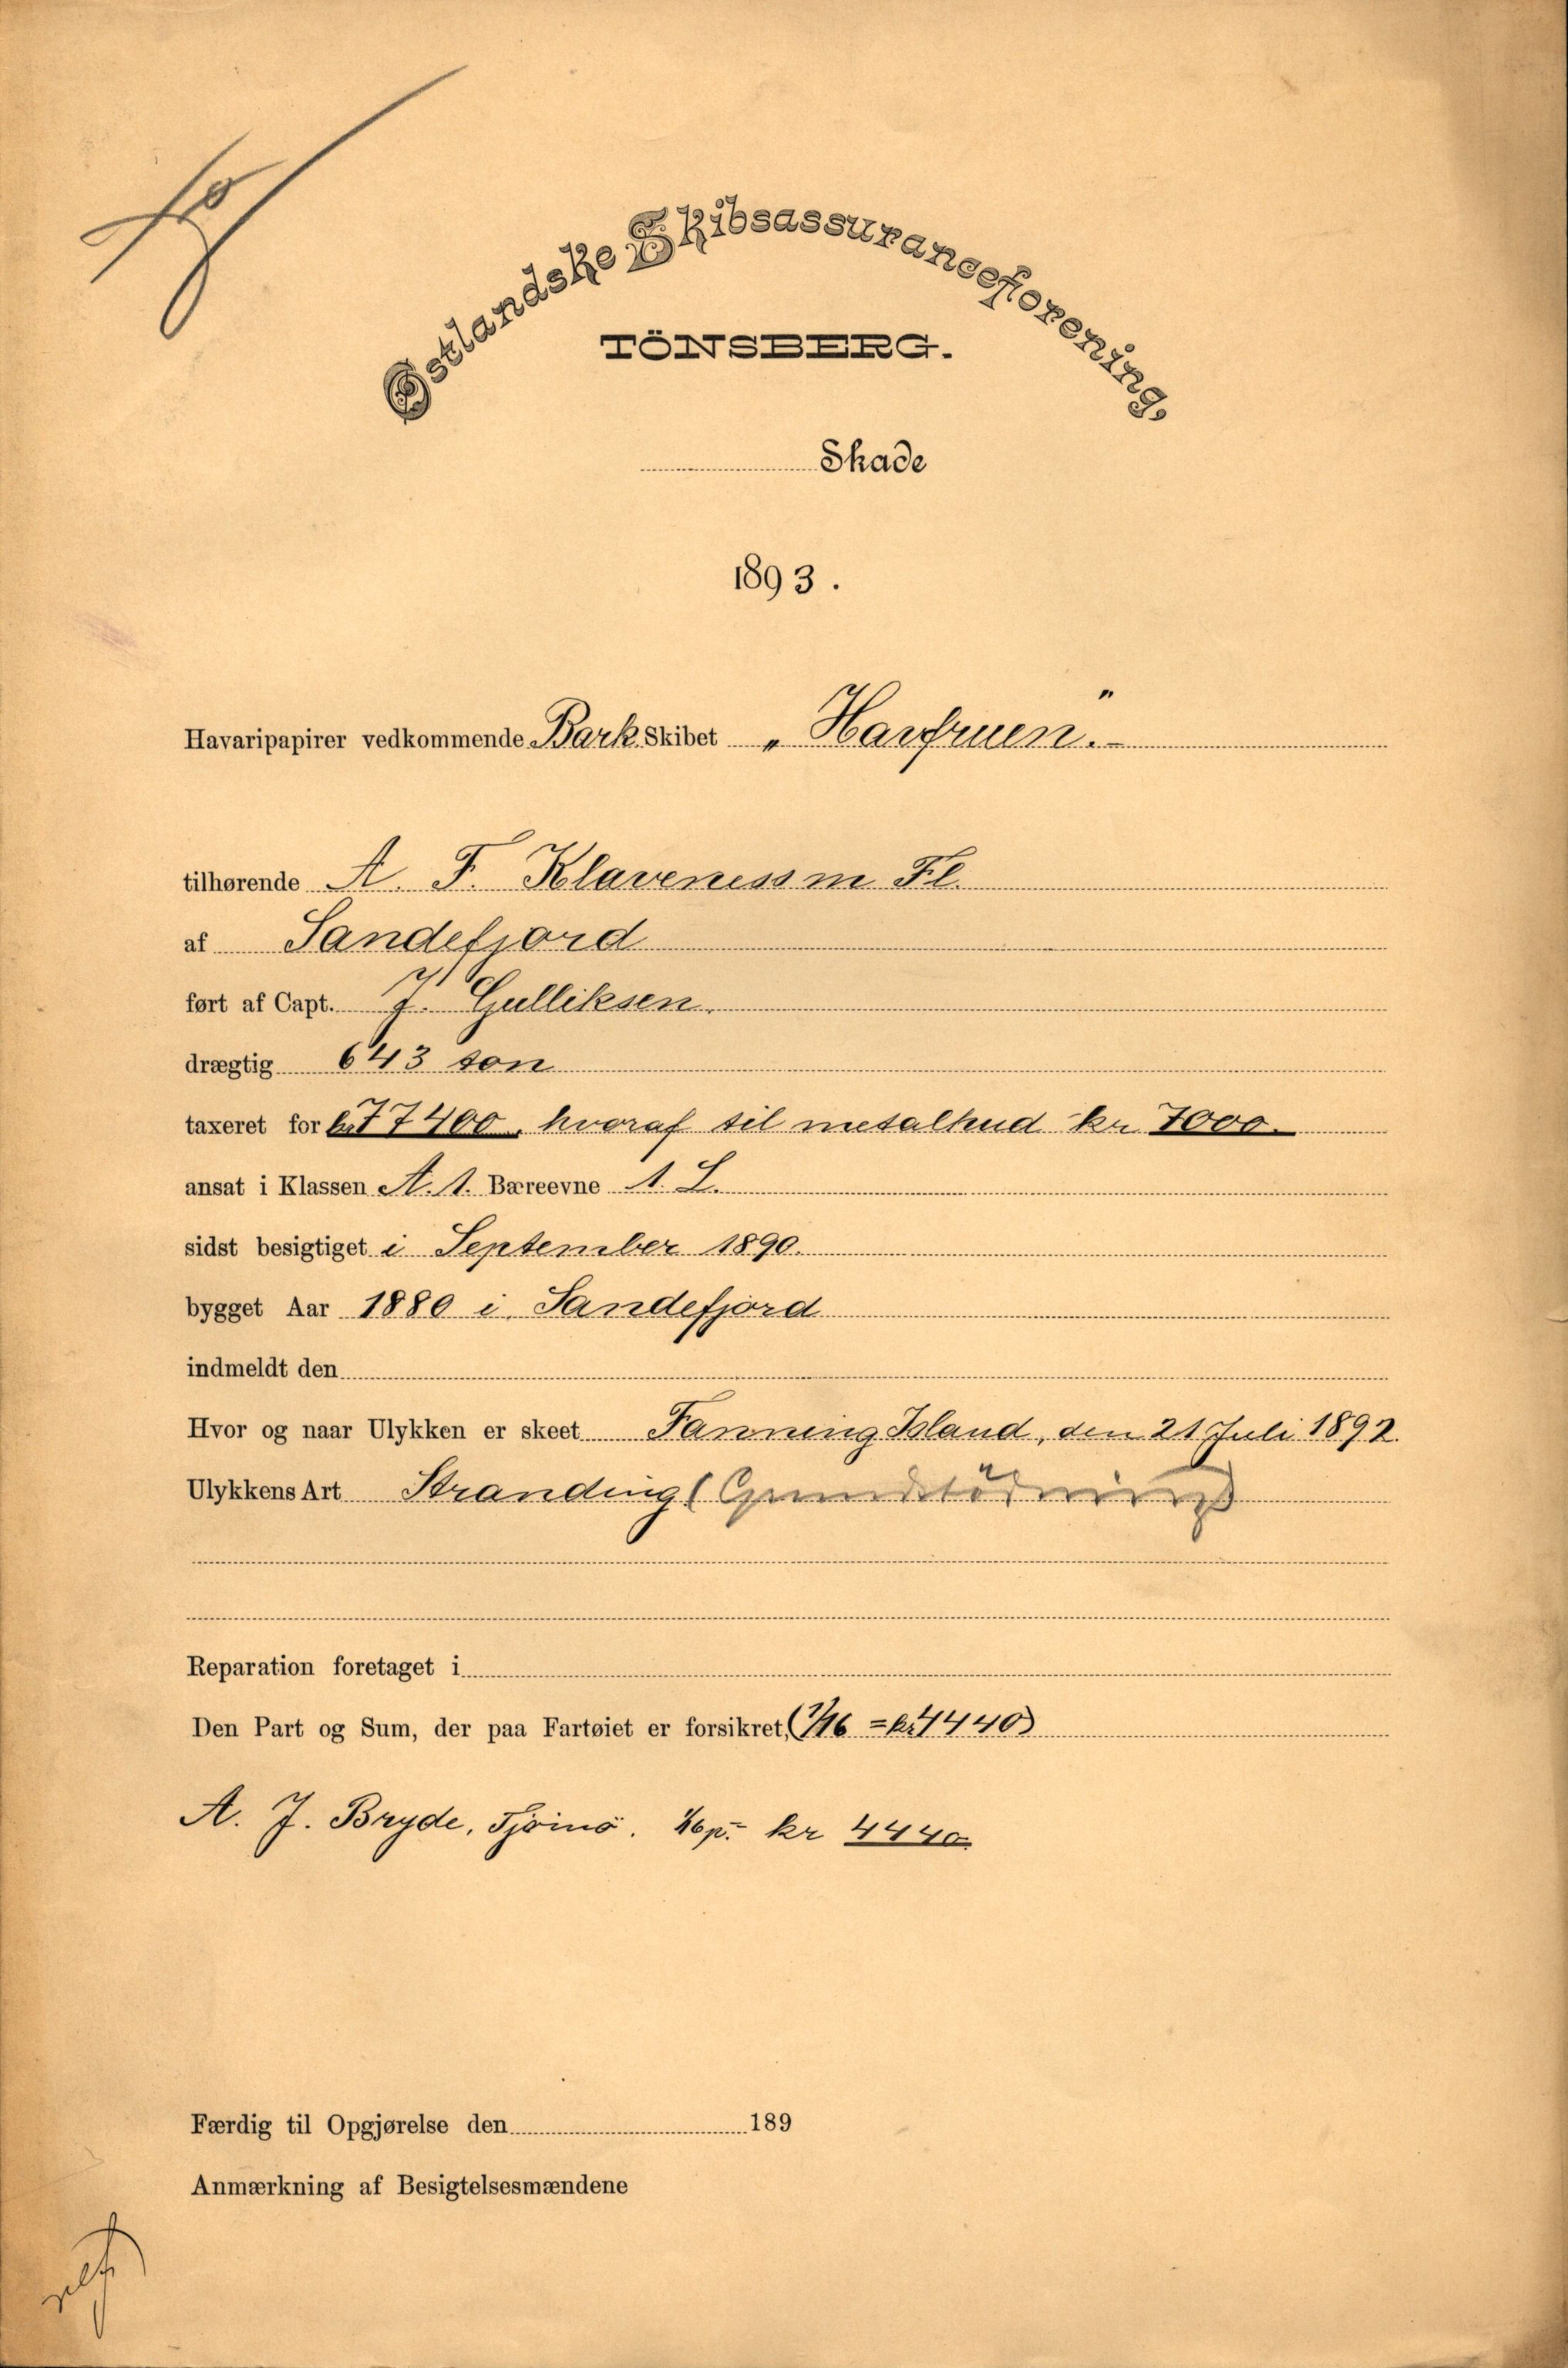 Østlandske Skibsassuranceforening,
TÖNSBERG.
Skade
1893.
Havaripapirer vedkommende Bark Skibet „Havfruen."
tilhørende A. F. Klaveness m Fl.
af Sandefjord
ført af Capt. J. Gulliksen.
drægtig 643 ton
taxeret for kr 77400, hvoraf til metalhud kr 7000.
ansat i Klassen A. 1. Bæreevne 1. L.
sidst besigtiget i September 1890.
bygget Aar 1880 i Sandefjord
indmeldt den
Hvor og naar Ulykken er skeet Fanning Island, den 21 Juli 1892.
Ulykkens Art Stranding (Grundstödning)
Reparation foretaget i
Den Part og Sum, der paa Fartøiet er forsikret, (1/16 = kr 4440)
A. J. Bryde, Tjömö. 1/16 p. kr 4440
Færdig til Opgjørelse den 189
Anmærkning af Besigtelsesmændene